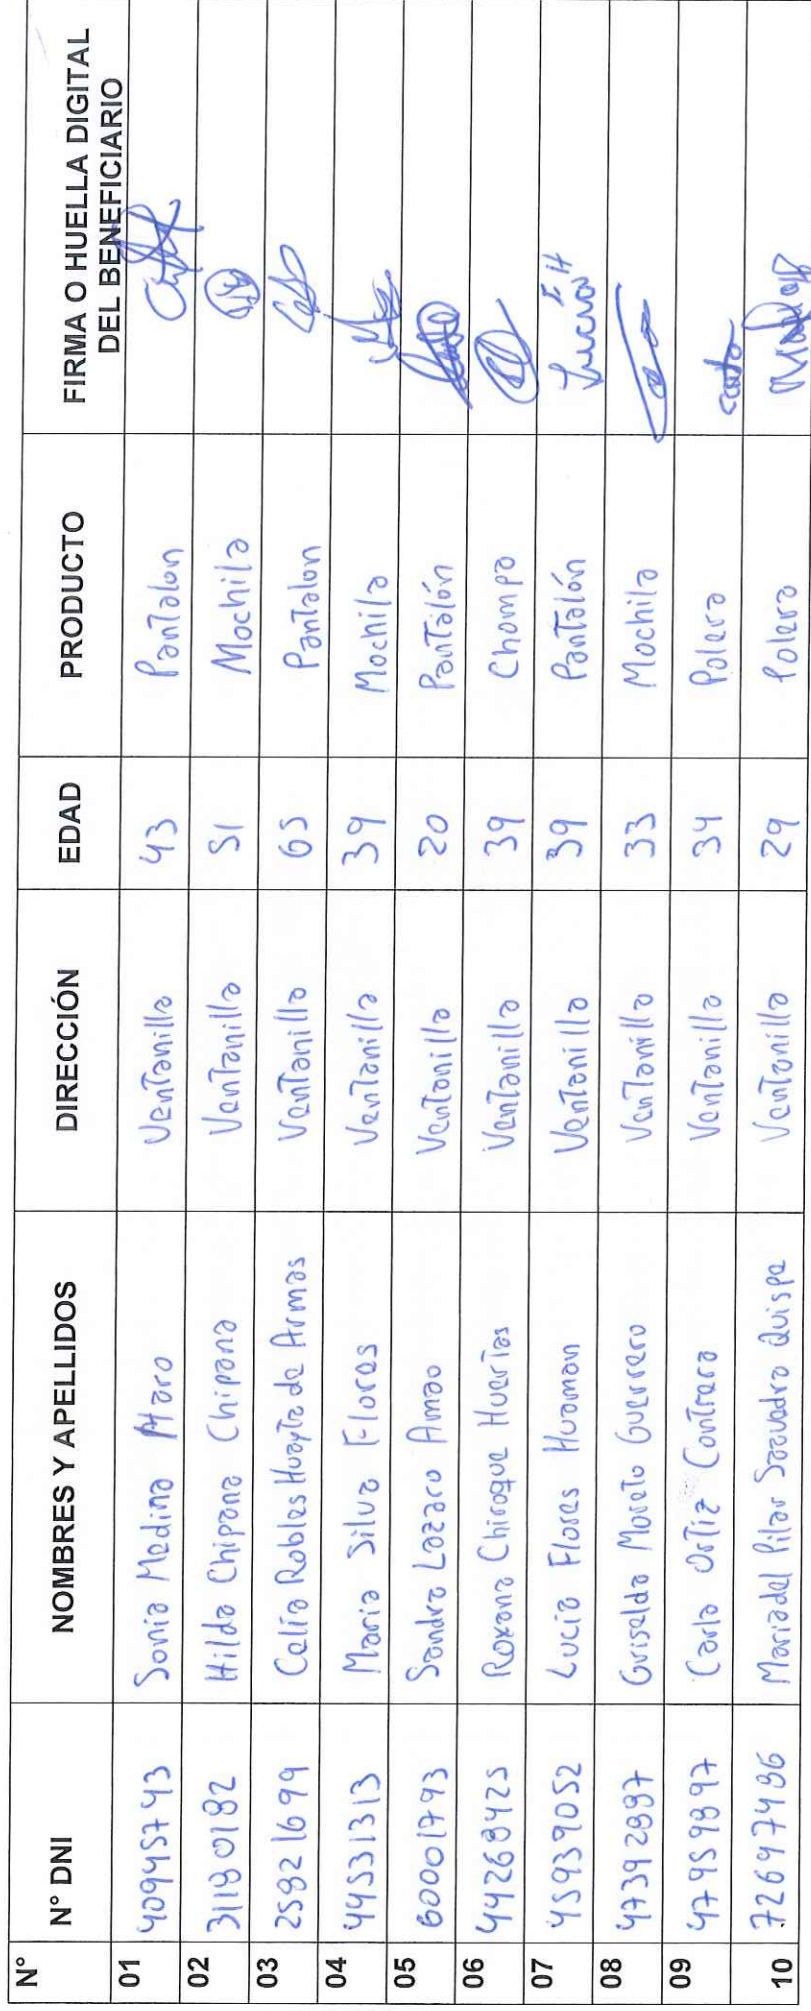 N° N° DNI NOMBRES Y APELLIDOS DIRECCIÓN EDAD PRODUCTO FIRMA O HUELLA DIGITAL
DEL BENEFICIARIO
01 40945743 Sonia Medina Haro Ventanilla 43 Pantalon
02 31180182 Hilda Chipana Chipana Ventanilla 51 Mochila
03 25821699 Celia Robles Huayta de Armas Ventanilla 65 Pantalon
04 44531313 Maria Silva Flores Ventanilla 39 Mochila
05 60001793 Sandra Lazaro Amao Ventanilla 20 Pantalón
06 44268425 Roxana Chiroque Huertas Ventanilla 39 Chompa
07 45939052 Lucia Flores Huaman Ventanilla 39 Pantalón Lucia F H
08 47392887 Griselda Morato Guerrero Ventanilla 33 Mochila
09 47959897 Carla Ortiz Contrera Ventanilla 34 Polera
10 72697496 Mariadel Pilar Saavadra Quispe Ventanilla 29 Polera